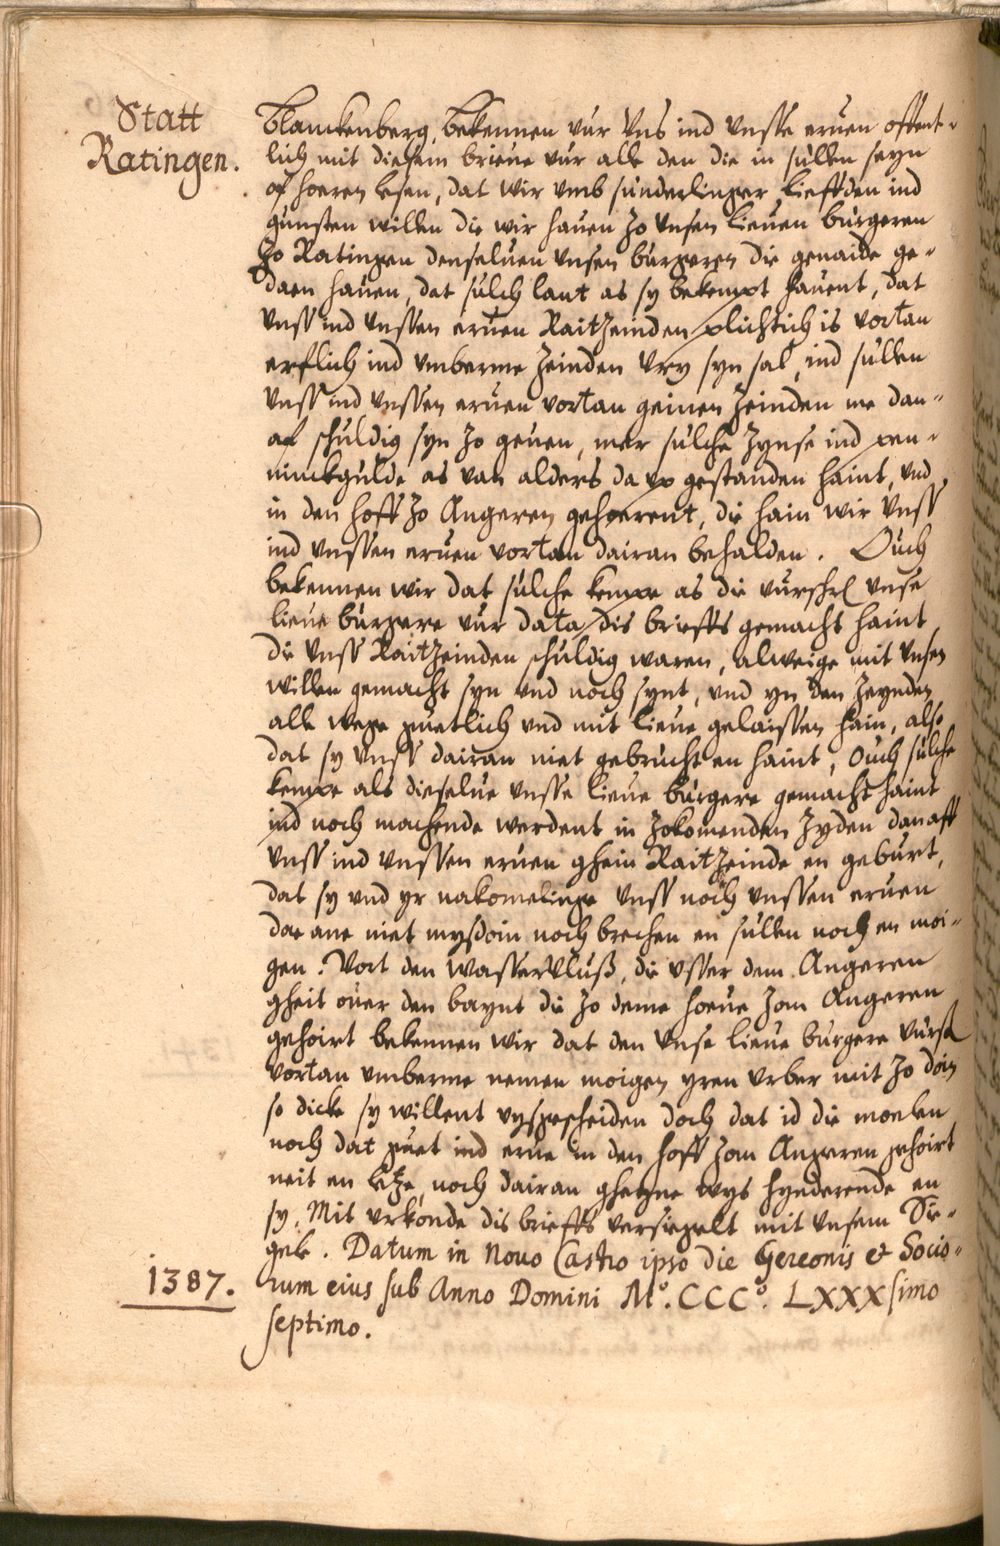 Statt
Ratingen.
Blanckenberg, bekennen vur Vns ind vnsse eruen offent-
lich mit diesem brieue vur alle den die in sullen seyn
of hoeren lesen, dat wir vmb sunderlinger lieffden ind
gunsten willen die wir hauen zo vnsen lieuen burgeren
zo Ratingen denseluen vnsen burgeren die genaide ge-
daen hauen, dat sulch lant as sy bekempt hauent, dat
vnss ind vnssen eruen Raitzeinden plichtich is vortan
erflich ind vmberme zeinden vry syn sal, ind sullen
vnss ind vnssen eruen vortan geinen zeinden me dan-
af schuldig syn zo geuen, mer sulche zynse ind pen-
ninckgulde as van alders da vp gestanden haint, vnd
in den hoff zo Angeren gehoerent, die hain wir vnss
ind vnssen eruen vortan dairan behalden. Ouch
bekennen wir dat sulche kempe as die vurschr vnse
lieue burgere vur data dis brieffs gemacht haint
die vnss Raitzeinden schuldig waren, alweige mit vnsen
willen gemacht syn vnd noch synt, vnd yn den zeynden
alle wege guetlich vnd mit lieue gelaissen hain, also
dat sy vnss dairan niet gebrucht en haint, Ouch sulche
kempe als dieselue vnsse lieue burgere gemacht haint
ind noch machende werdent in zokomenden zyden danaff
vnss ind vnssen eruen ghein Raitzeinde en geburt,
dat sy vnd yr nakomelinge vnss noch vnssen eruen
dae ane niet mysdoin noch brechen en sullen noch en moi-
gen. Vort den wasservluß, die vsser dem Angeren
gheit ouer den baynt die zo deme houe zom Angeren
gehoirt bekennen wir dat den vnse lieue burgere vurß
vortan vmberme nemen moigen yren vrber mit zo doin
so dicke sy willent vysgescheiden doch dat id die moelen
noch dat guet ind erue in den hoff zom Angeren gehoirt
neit en letze, noch dairan gheyne wys hynderende en
sy. Mit vrkonde dis brieffs versiegelt mit vnsem Sie-
gele. Datum in Nouo Castro ipso die Gereonis et Socio-
1387. rum eius sub Anno Domini Mº. CCCº. LXXXsimo
septimo.